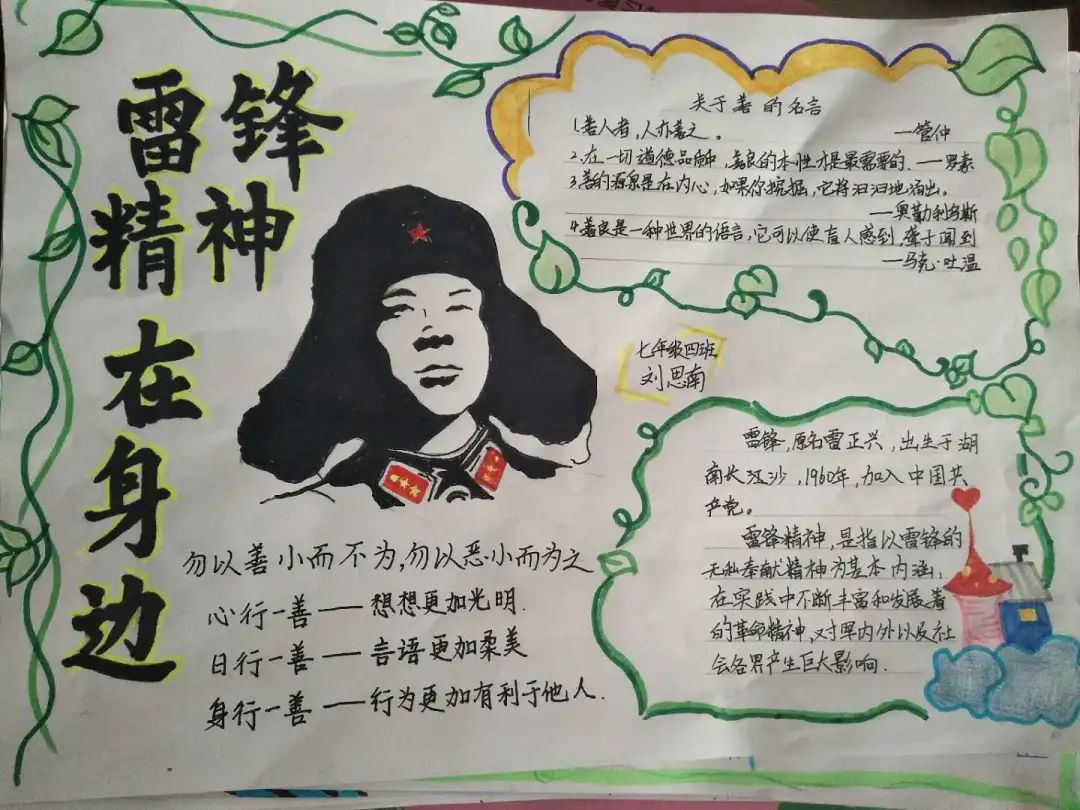 雷锋
精神
在
身
边
关于善的名言
1.善人者,人亦善之。 —管仲
2.在一切道德品质中,善良的本性才是最需要的.—罗素
3.善的源泉是在内心,如果你挖掘,它将汩汩地涌出。
—奥勒利乌斯
4.善良是一种世界的语言,它可以使盲人感到,聋子闻到
—马克·吐温
七年级四班
刘思南
勿以善小而不为,勿以恶小而为之
心行一善——想想更加光明.
日行一善——言语更加柔美
身行一善——行为更加有利于他人.
雷锋,原名雷正兴,出生于湖
南长沙,1960年,加入中国共
产党。
雷锋精神,是指以雷锋的
无私奉献精神为基本内涵,
在实践中不断丰富和发展着
的革命精神,对里内外以及社
会各界产生巨大影响.